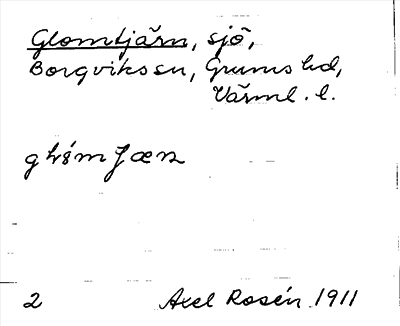 Glomtjärn, sjö,
Borgviks sn, Grums hd,
Värml. l.
2 Axel Rosén 1911